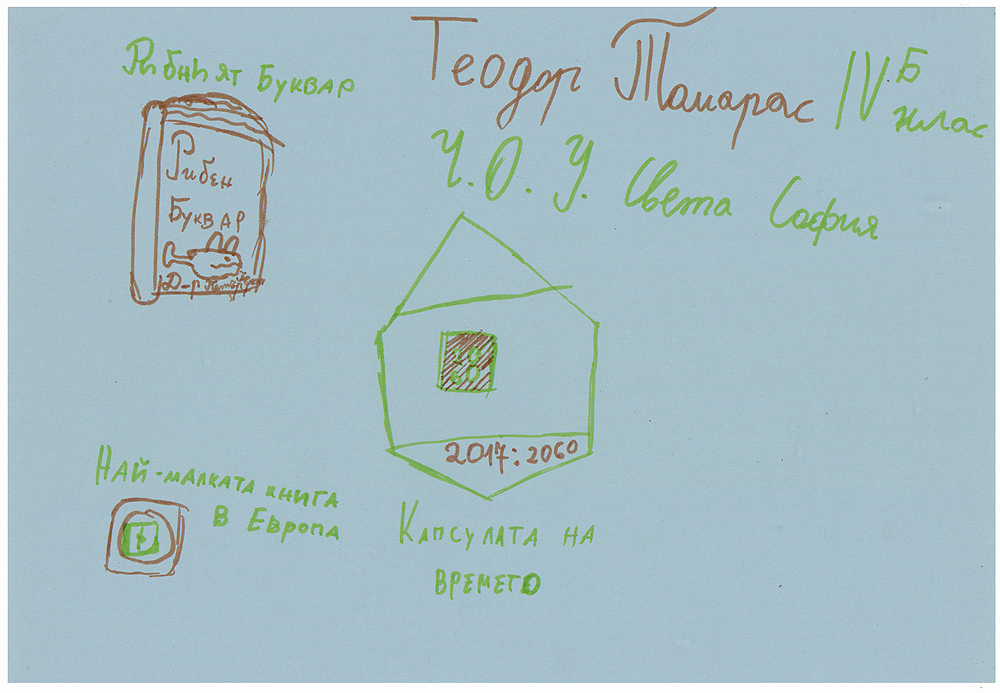 Рибният Буквар
Теодор Тамарас
IV Б
клас
Ч. О. У. Света София
Рибен
Буквар
Д-р
2017:2060
Най-малката книга
в Европа
Капсулата на
времето